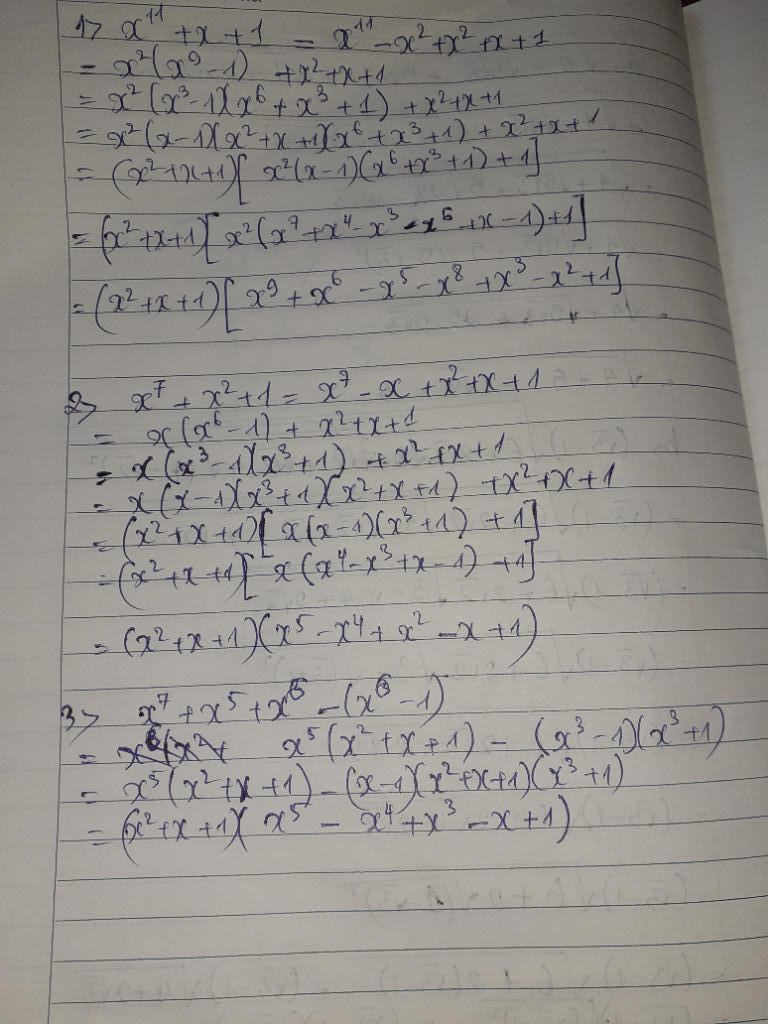 1> x¹¹ + x + 1 = x¹¹ - x² + x² + x + 1
= x²(x⁹ - 1) + x² + x + 1
= x²(x³ - 1)(x⁶ + x³ + 1) + x² + x + 1
= x²(x - 1)(x² + x + 1)(x⁶ + x³ + 1) + x² + x + 1
= (x² + x + 1)[x²(x - 1)(x⁶ + x³ + 1) + 1]
= (x² + x + 1)[x²(x⁷ + x⁴ - x³ - x⁶ + x - 1) + 1]
= (x² + x + 1)[x⁹ + x⁶ - x⁵ - x⁸ + x³ - x² + 1]
2> x⁷ + x² + 1 = x⁷ - x + x² + x + 1
= x(x⁶ - 1) + x² + x + 1
= x(x³ - 1)(x³ + 1) + x² + x + 1
= x(x - 1)(x³ + 1)(x² + x + 1) + x² + x + 1
= (x² + x + 1)[x(x - 1)(x³ + 1) + 1]
= (x² + x + 1)[x(x⁴ - x³ + x - 1) + 1]
= (x² + x + 1)(x⁵ - x⁴ + x² - x + 1)
3> x⁷ + x⁵ + x⁶ - (x⁶ - 1)
= x⁵(x² + x + 1) - (x³ - 1)(x³ + 1)
= x⁵(x² + x + 1) - (x - 1)(x² + x + 1)(x³ + 1)
= (x² + x + 1)(x⁵ - x⁴ + x³ - x + 1)